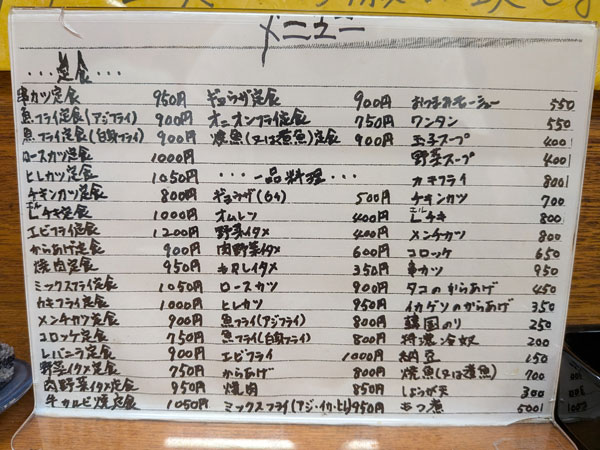 メニュー
・・・定食・・・
串カツ定食 950円
魚フライ定食(アジフライ) 900円
魚フライ定食(白身フライ) 900円
ロースカツ定食 1000円
ヒレカツ定食 1050円
チキンカツ定食 800円
エルLチキ定食 1000円
エビフライ定食 1200円
からあげ定食 900円
焼肉定食 950円
ミックスフライ定食 1050円
カキフライ定食 1000円
メンチカツ定食 900円
コロッケ定食 750円
レバニラ定食 900円
野菜イタメ定食 750円
肉野菜イタメ定食 950円
牛カルビ焼定食 1050円
ギョウザ定食 900円
オニオンフライ定食 750円
焼魚(又は煮魚)定食 900円
・・・一品料理・・・
ギョウザ(6ケ) 500円
オムレツ 400円
野菜イタメ 400円
肉野菜イタメ 600円
キムレイタメ 350円
ロースカツ 900円
ヒレカツ 950円
魚フライ(アジフライ) 800円
魚フライ(白身フライ) 800円
エビフライ 1000円
からあげ 800円
焼肉 850円
ミックスフライ(アジ・イカ・ヒレ) 950円
おつまみチャーシュー 550
ワンタン 550
玉子スープ 400
野菜スープ 400
カキフライ 800
チキンカツ 700
エルLチキ 800
メンチカツ 800
コロッケ 650
串カツ 950
タコのからあげ 450
イカゲソのからあげ 350
韓国のり 250
特濃冷奴 200
納豆 150
焼魚(又は煮魚) 700
しょうが天 300
もつ煮 500